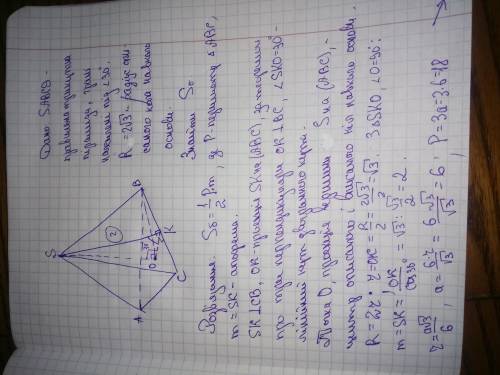 Дано SABCD -
правильна трикутна
піраміда, грані
нахилені під ∠30.
R = 2√3 - радіус опи
саного кола навколо
основи.
Знайти Sб
S
A
B
C
O
K
Розвязання: Sб = 1/2 P·m де P - периметр ΔABC,
m = SK - апофема.
SK ⊥ CB, OK проекція SK на (ABC), за теоремою
про три перпендикуляри OK ⊥ BC, ∠SKO = 30° -
лінійний кут двогранного кута.
Точка O, проекція вершини S на (ABC), -
центр описаного і вписаного кіл навколо основи.
R = 2r · r = OK = R/2 = 2√3/2 = √3. З ΔSKO, ∠O = 90°:
m = SK = OK/cos30° = √3 : √3/2 = 2.
r = a√3/6, a = 6r/√3 = 6√3/√3 = 6, P = 3a = 3·6 = 18